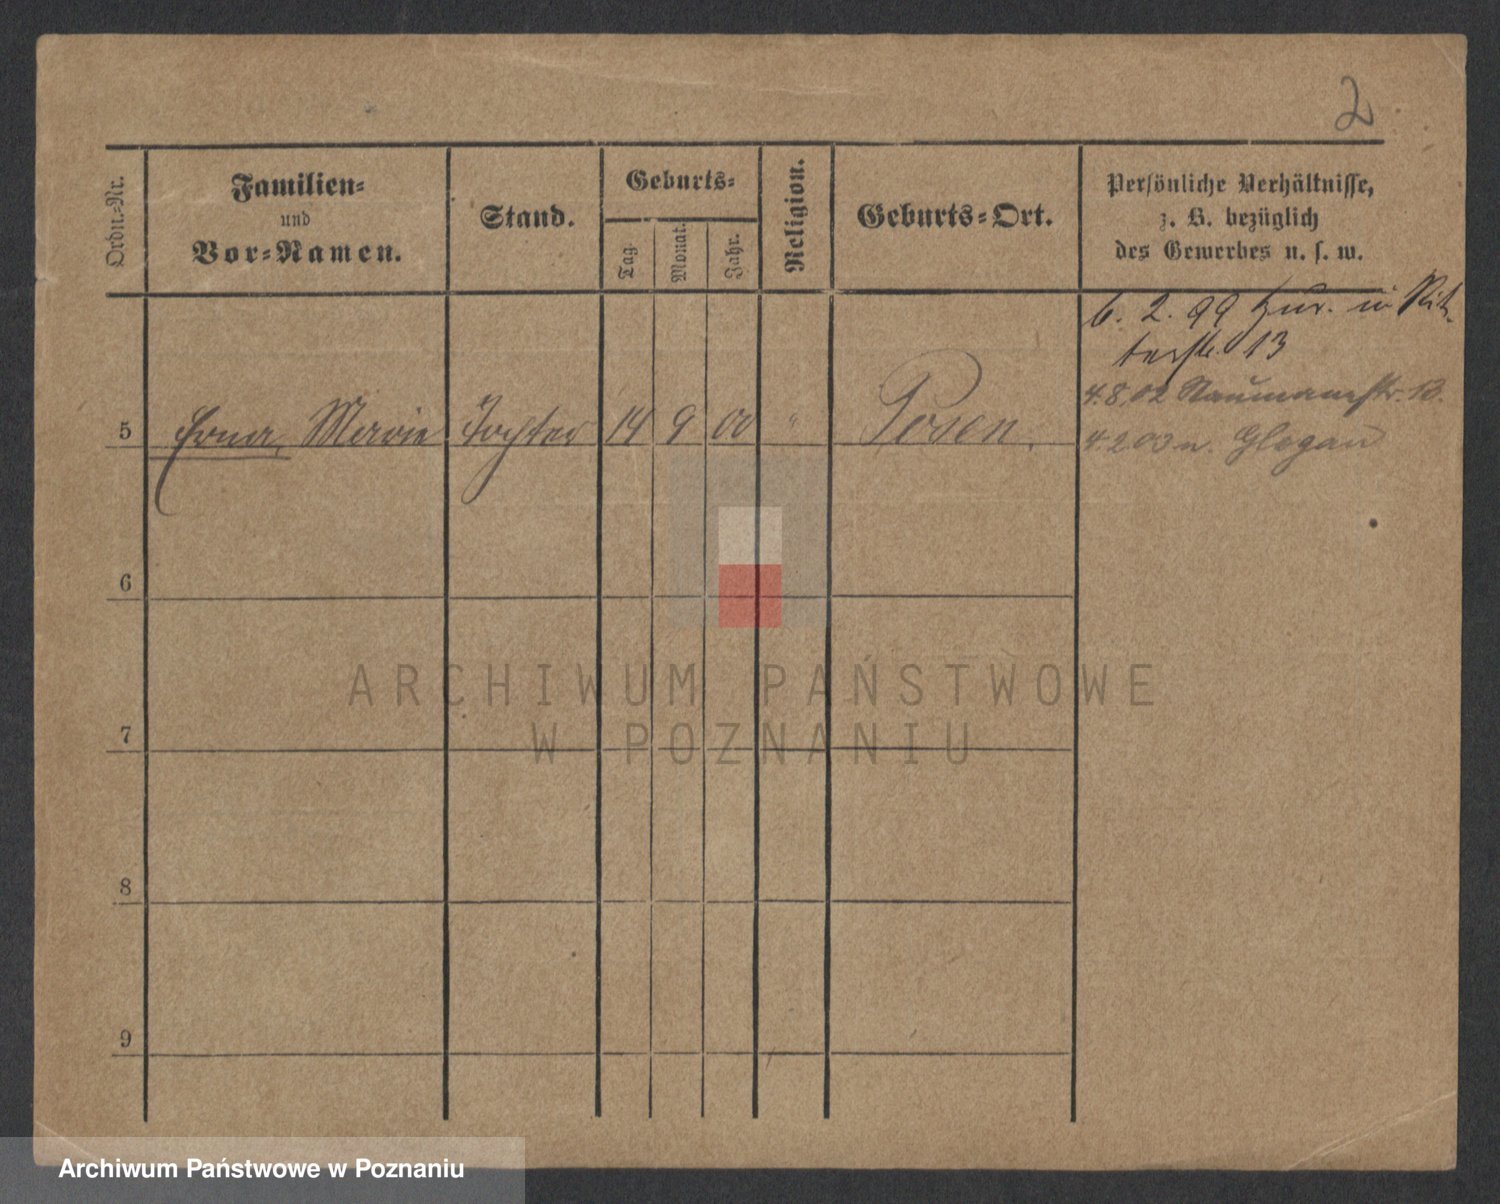 2
Ordn.-Nr.
Familien-
und
Vor-Namen.
Stand.
Geburts-
Tag.
Monat.
Jahr.
Religion.
Geburts-Ort.
Persönliche Verhältnisse,
z. B. bezüglich
des Gewerbes u. s. w.
6. 2. 99 zur. in Rit-
terstr. 13
4.8.02 Naumannstr. 13.
4.2.03 n. Glogau
5 Erna, Marie Tochter 14 9 00 " Posen.
6
7
8
9
ARCHIWUM PAŃSTWOWE
W POZNANIU
Archiwum Państwowe w Poznaniu